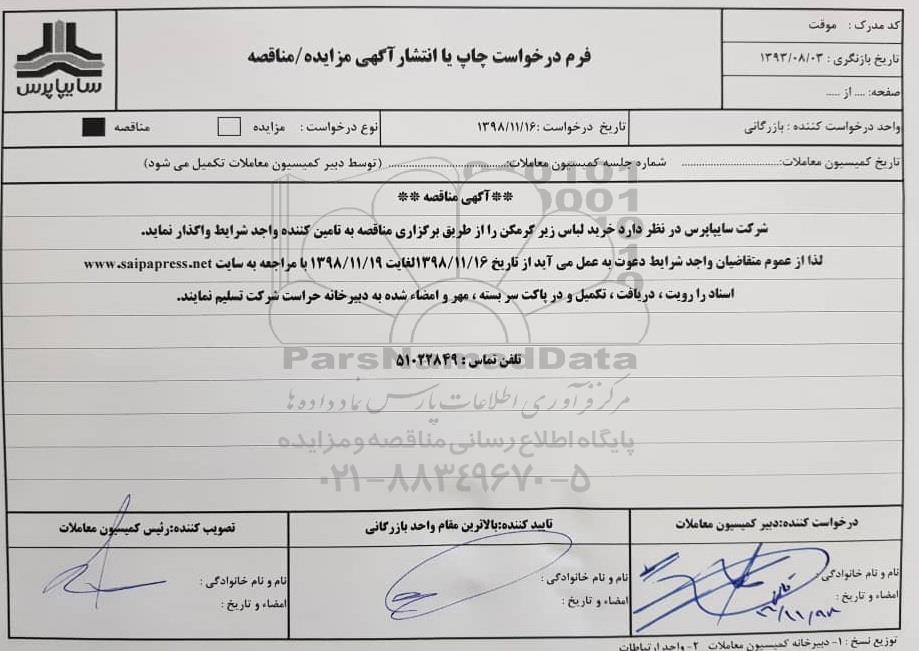 کد مدرک : موقت
تاریخ بازنگری : ۱۳۹۳/۰۸/۰۳
صفحه: .... از .....
فرم درخواست چاپ یا انتشار آگهی مزایده/مناقصه
سایپاپرس
واحد درخواست کننده : بازرگانی
تاریخ درخواست :۱۳۹۸/۱۱/۱۶
نوع درخواست : مزایده مناقصه
تاریخ کمیسیون معاملات:.............................. شماره جلسه کمیسیون معاملات:.................................... (توسط دبیر کمیسیون معاملات تکمیل می شود)
**آگهی مناقصه **
شرکت سایپاپرس در نظر دارد خرید لباس زیر گرمکن را از طریق برگزاری مناقصه به تامین کننده واجد شرایط واگذار نماید.
لذا از عموم متقاضیان واجد شرایط دعوت به عمل می آید از تاریخ ۱۳۹۸/۱۱/۱۶لغایت ۱۳۹۸/۱۱/۱۹ با مراجعه به سایت www.saipapress.net
اسناد را رویت ، دریافت ، تکمیل و در پاکت سر بسته ، مهر و امضاء شده به دبیرخانه حراست شرکت تسلیم نمایند.
تلفن تماس : ۵۱۰۲۲۸۴۹
ParsNamadData
مرکز فرآوری اطلاعات پارس نماد داده ها
پایگاه اطلاع رسانی مناقصه و مزایده
۰۲۱-۸۸۳۴۹۶۷۰-۵
درخواست کننده:دبیر کمیسیون معاملات
نام و نام خانوادگی :
امضاء و تاریخ :
تایید کننده:بالاترین مقام واحد بازرگانی
نام و نام خانوادگی :
امضاء و تاریخ :
تصویب کننده:رئیس کمیسیون معاملات
نام و نام خانوادگی :
امضاء و تاریخ :
توزیع نسخ : ۱- دبیرخانه کمیسیون معاملات ۲- واحد ارتباطات